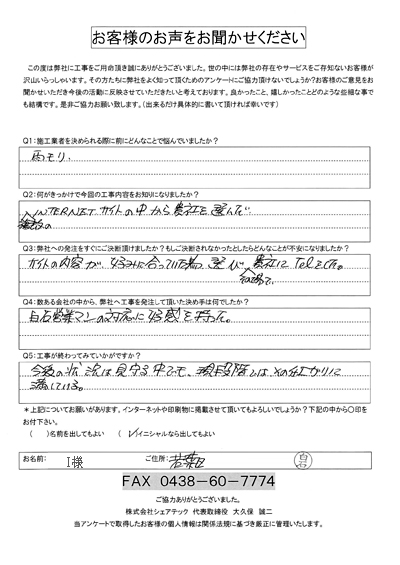 お客様のお声をお聞かせください
この度は弊社に工事をご用命頂き誠にありがとうございました。世の中には弊社の存在やサービスをご存知ないお客様が
沢山いらっしゃいます。その方たちに弊社をよく知って頂くためのアンケートにご協力頂けないでしょうか?お客様のご意見をお
聞かせいただき今後の活動に反映させていただきたいと考えております。良かったこと、嬉しかったことどのような些細な事で
も結構です。是非ご協力お願い致します。(出来るだけ具体的に書いて頂ければ幸いです)
Q1:施工業者を決められる際に前にどんなことで悩んでいましたか?
雨モリ.
Q2:何がきっかけで今回の工事内容をお知りになりましたか?
INTERNET サイトの中から貴社を選んで.
複数の
Q3:弊社への発注をすぐにご決断頂けましたか?もしご決断されなかったとしたらどんなことが不安になりましたか?
サイトの内容が、好みに合っていた為、選び、貴社に Telをした。
その場で、
Q4:数ある会社の中から、弊社へ工事を発注して頂いた決め手は何でしたか?
白石営業マンの対応に好感を持って。
Q5:工事が終わってみていかがですか?
今後の状況は見守る中でも、現段階では、その仕上がりに
満している。
*上記についてお願いがあります。インターネットや印刷物に掲載させて頂いてもよろしいでしょうか?下記の中から〇印を
お付下さい。
( )名前を出してもよい (✓)イニシャルなら出してもよい
お名前: I様 ご住所: 若葉区 白石
FAX 0438-60-7774
ご協力ありがとうございました。
株式会社シェアテック 代表取締役 大久保 誠二
当アンケートで取得したお客様の個人情報は関係法規に基づき厳正に管理いたします。